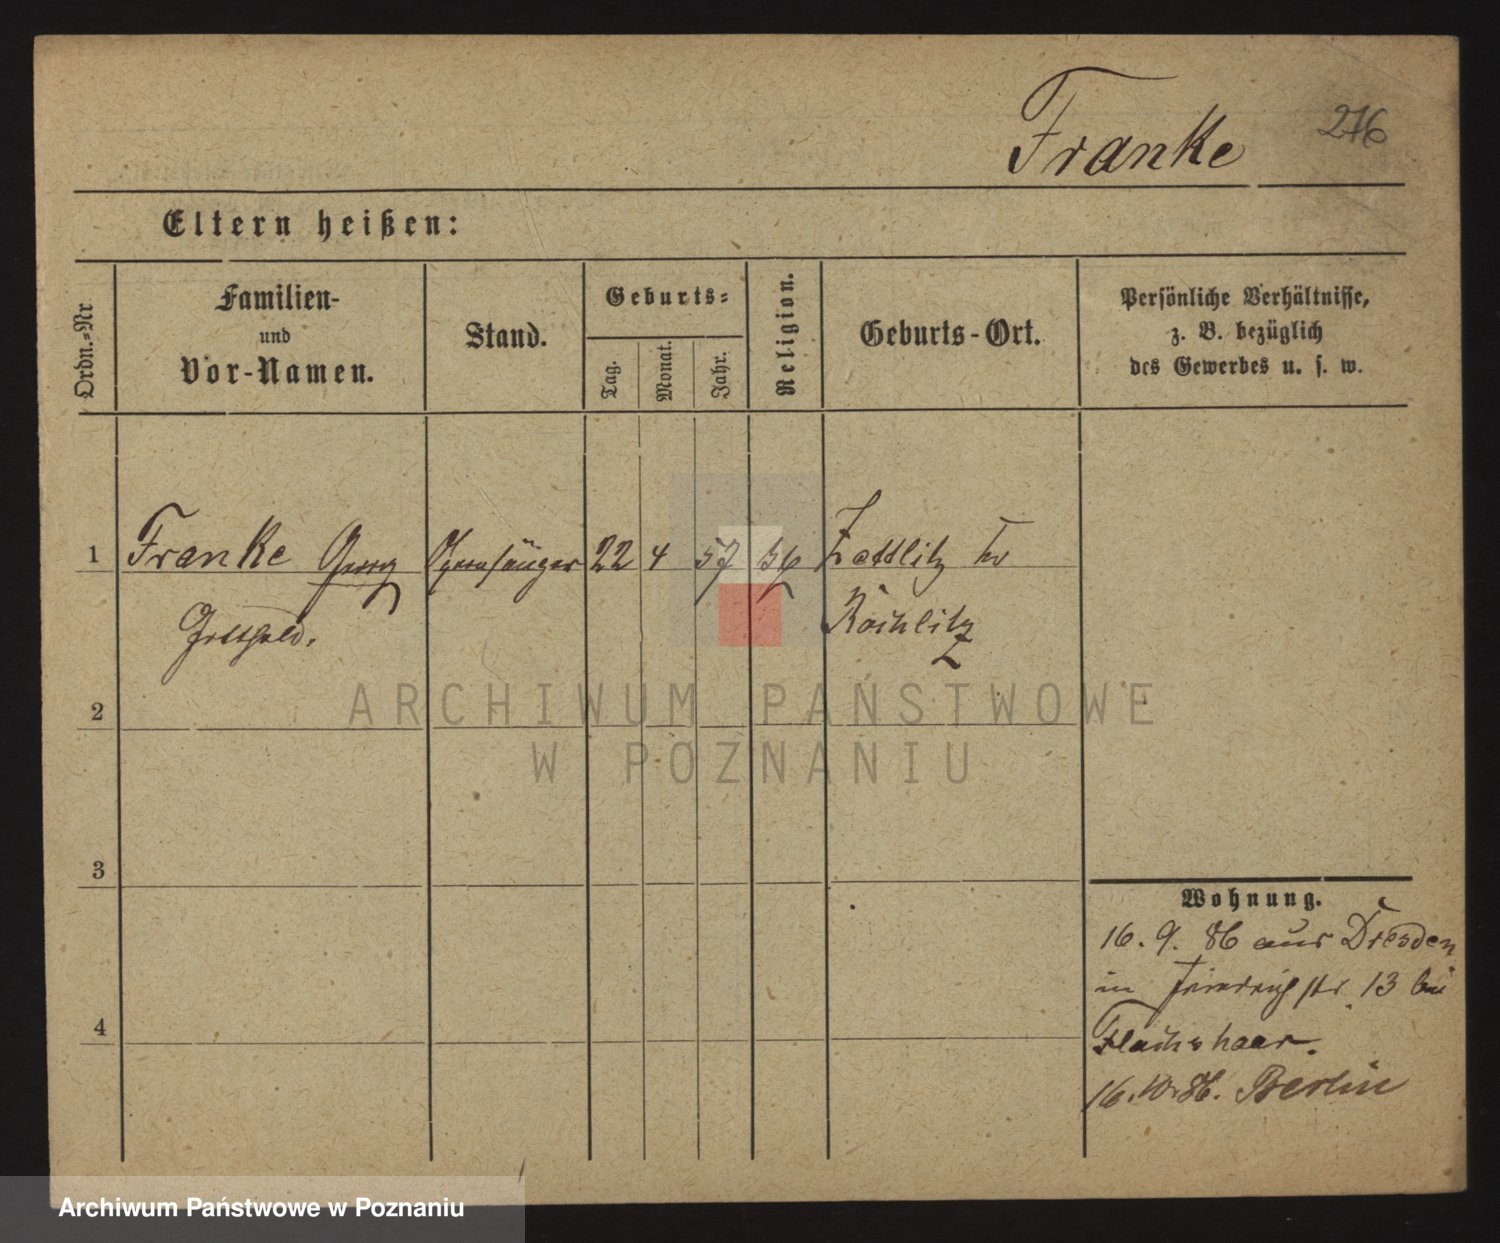 Franke
276
Eltern heißen:
Ordn.-Nr
Familien-
und
Vor-Namen.
Stand.
Geburts-
Tag.
Monat.
Jahr.
Religion.
Geburts-Ort.
Persönliche Verhältnisse,
z. B. bezüglich
des Gewerbes u. s. w.
1 Franke Georg Opernsänger 22 4 57 Zettlitz Kr
Gotthold. Rochlitz
2
3
4
Wohnung.
16. 9. 86 aus Dresden
in Friedrichstr. 13 bei
Flachshaar.
16. 10. 86. Berlin
ARCHIWUM PAŃSTWOWE
W POZNANIU
Archiwum Państwowe w Poznaniu